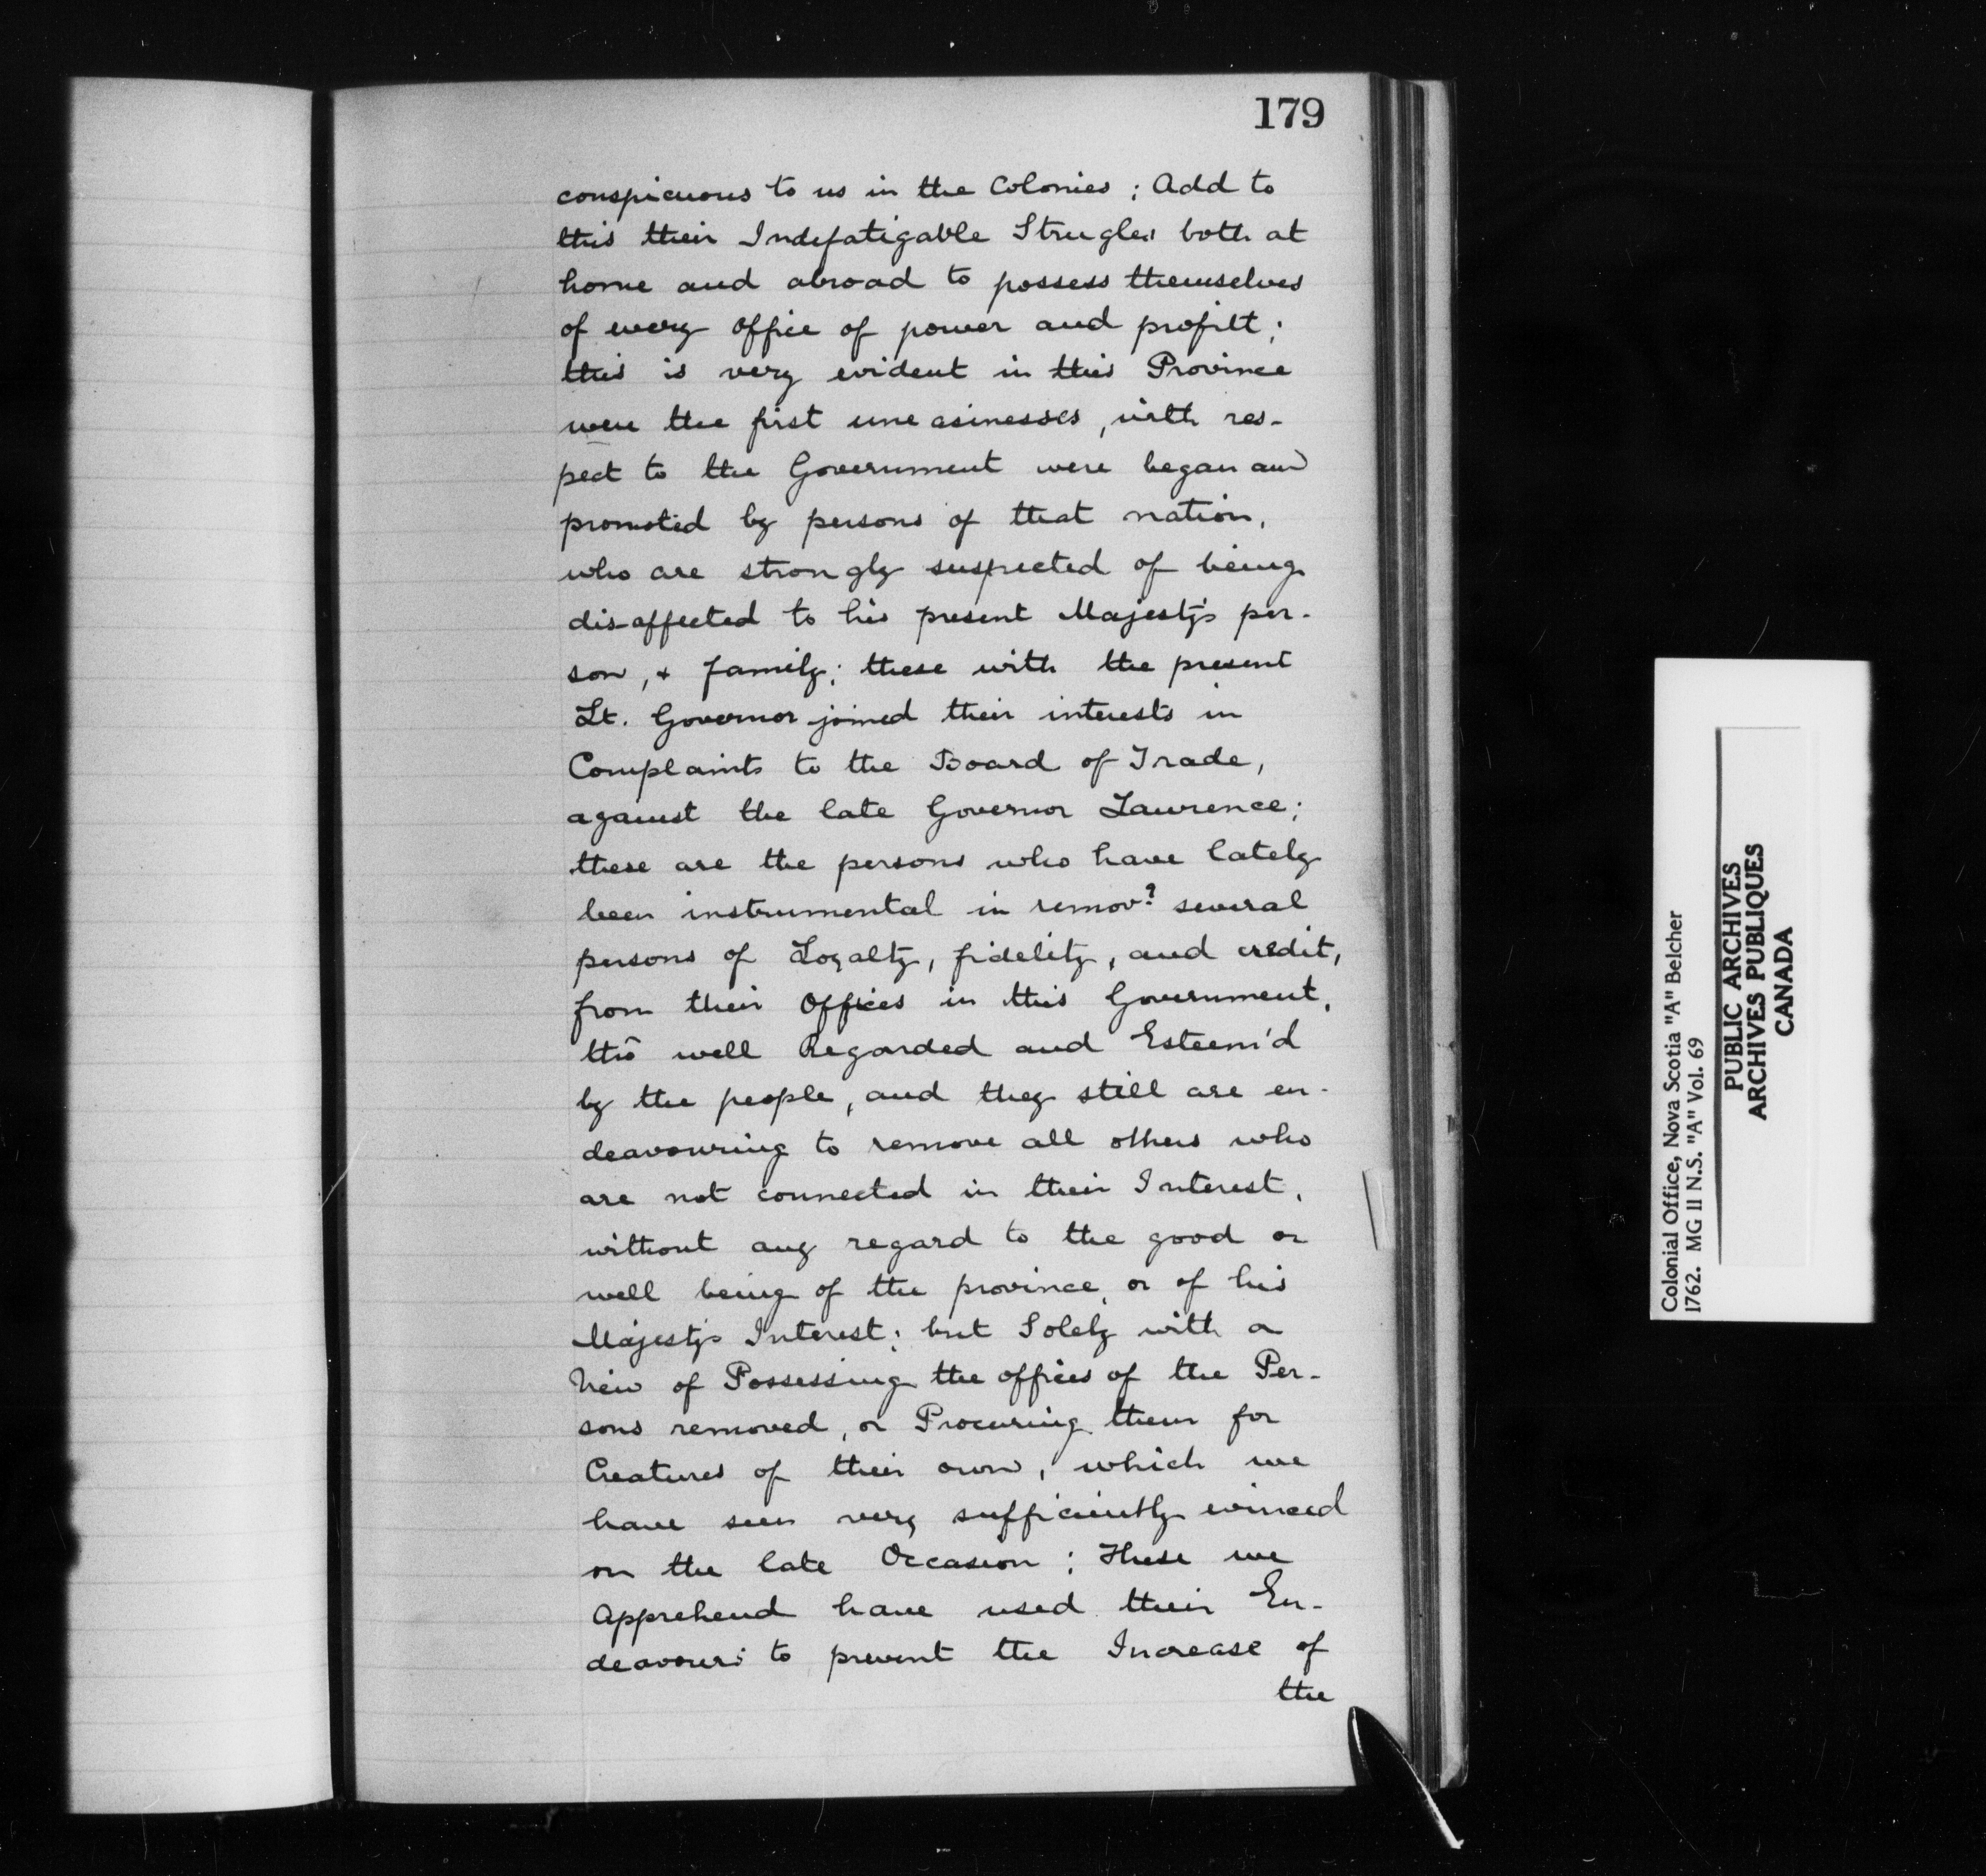 179
conspicuous to us in the Colonies; Add to
this their Indefatigable Strugles both at
home and abroad to possess themselves
of every office of power and profitt;
this is very evident in this Province
were the first uneasinesses, with res-
pect to the Government were began and
promoted by persons of that nation,
who are strongly suspected of being
disaffected to his present Majesty's per-
son, & family; these with the present
Lt. Governor joined their interests in
Complaints to the Board of Trade,
against the late Governor Lawrence;
these are the persons who have lately
been instrumental in remov.g several
persons of Loyalty, fidelity, and credit,
from their Offices in this Government,
tho well Regarded and Esteem'd
by the people, and they still are en-
deavouring to remove all others who
are not connected in their Interest,
without any regard to the good or
well being of the province, or of his
Majesty's Interest; but Solely with a
View of Possessing the offices of the Per-
sons removed, or Procuring them for
Creatures of their own, which we
have seen very sufficiently evinced
on the late Occasion; These we
Apprehend have used their En-
deavours to prevent the Increase of
the
Colonial Office, Nova Scotia "A" Belcher
1762. MG II N.S. "A" Vol. 69
PUBLIC ARCHIVES
ARCHIVES PUBLIQUES
CANADA